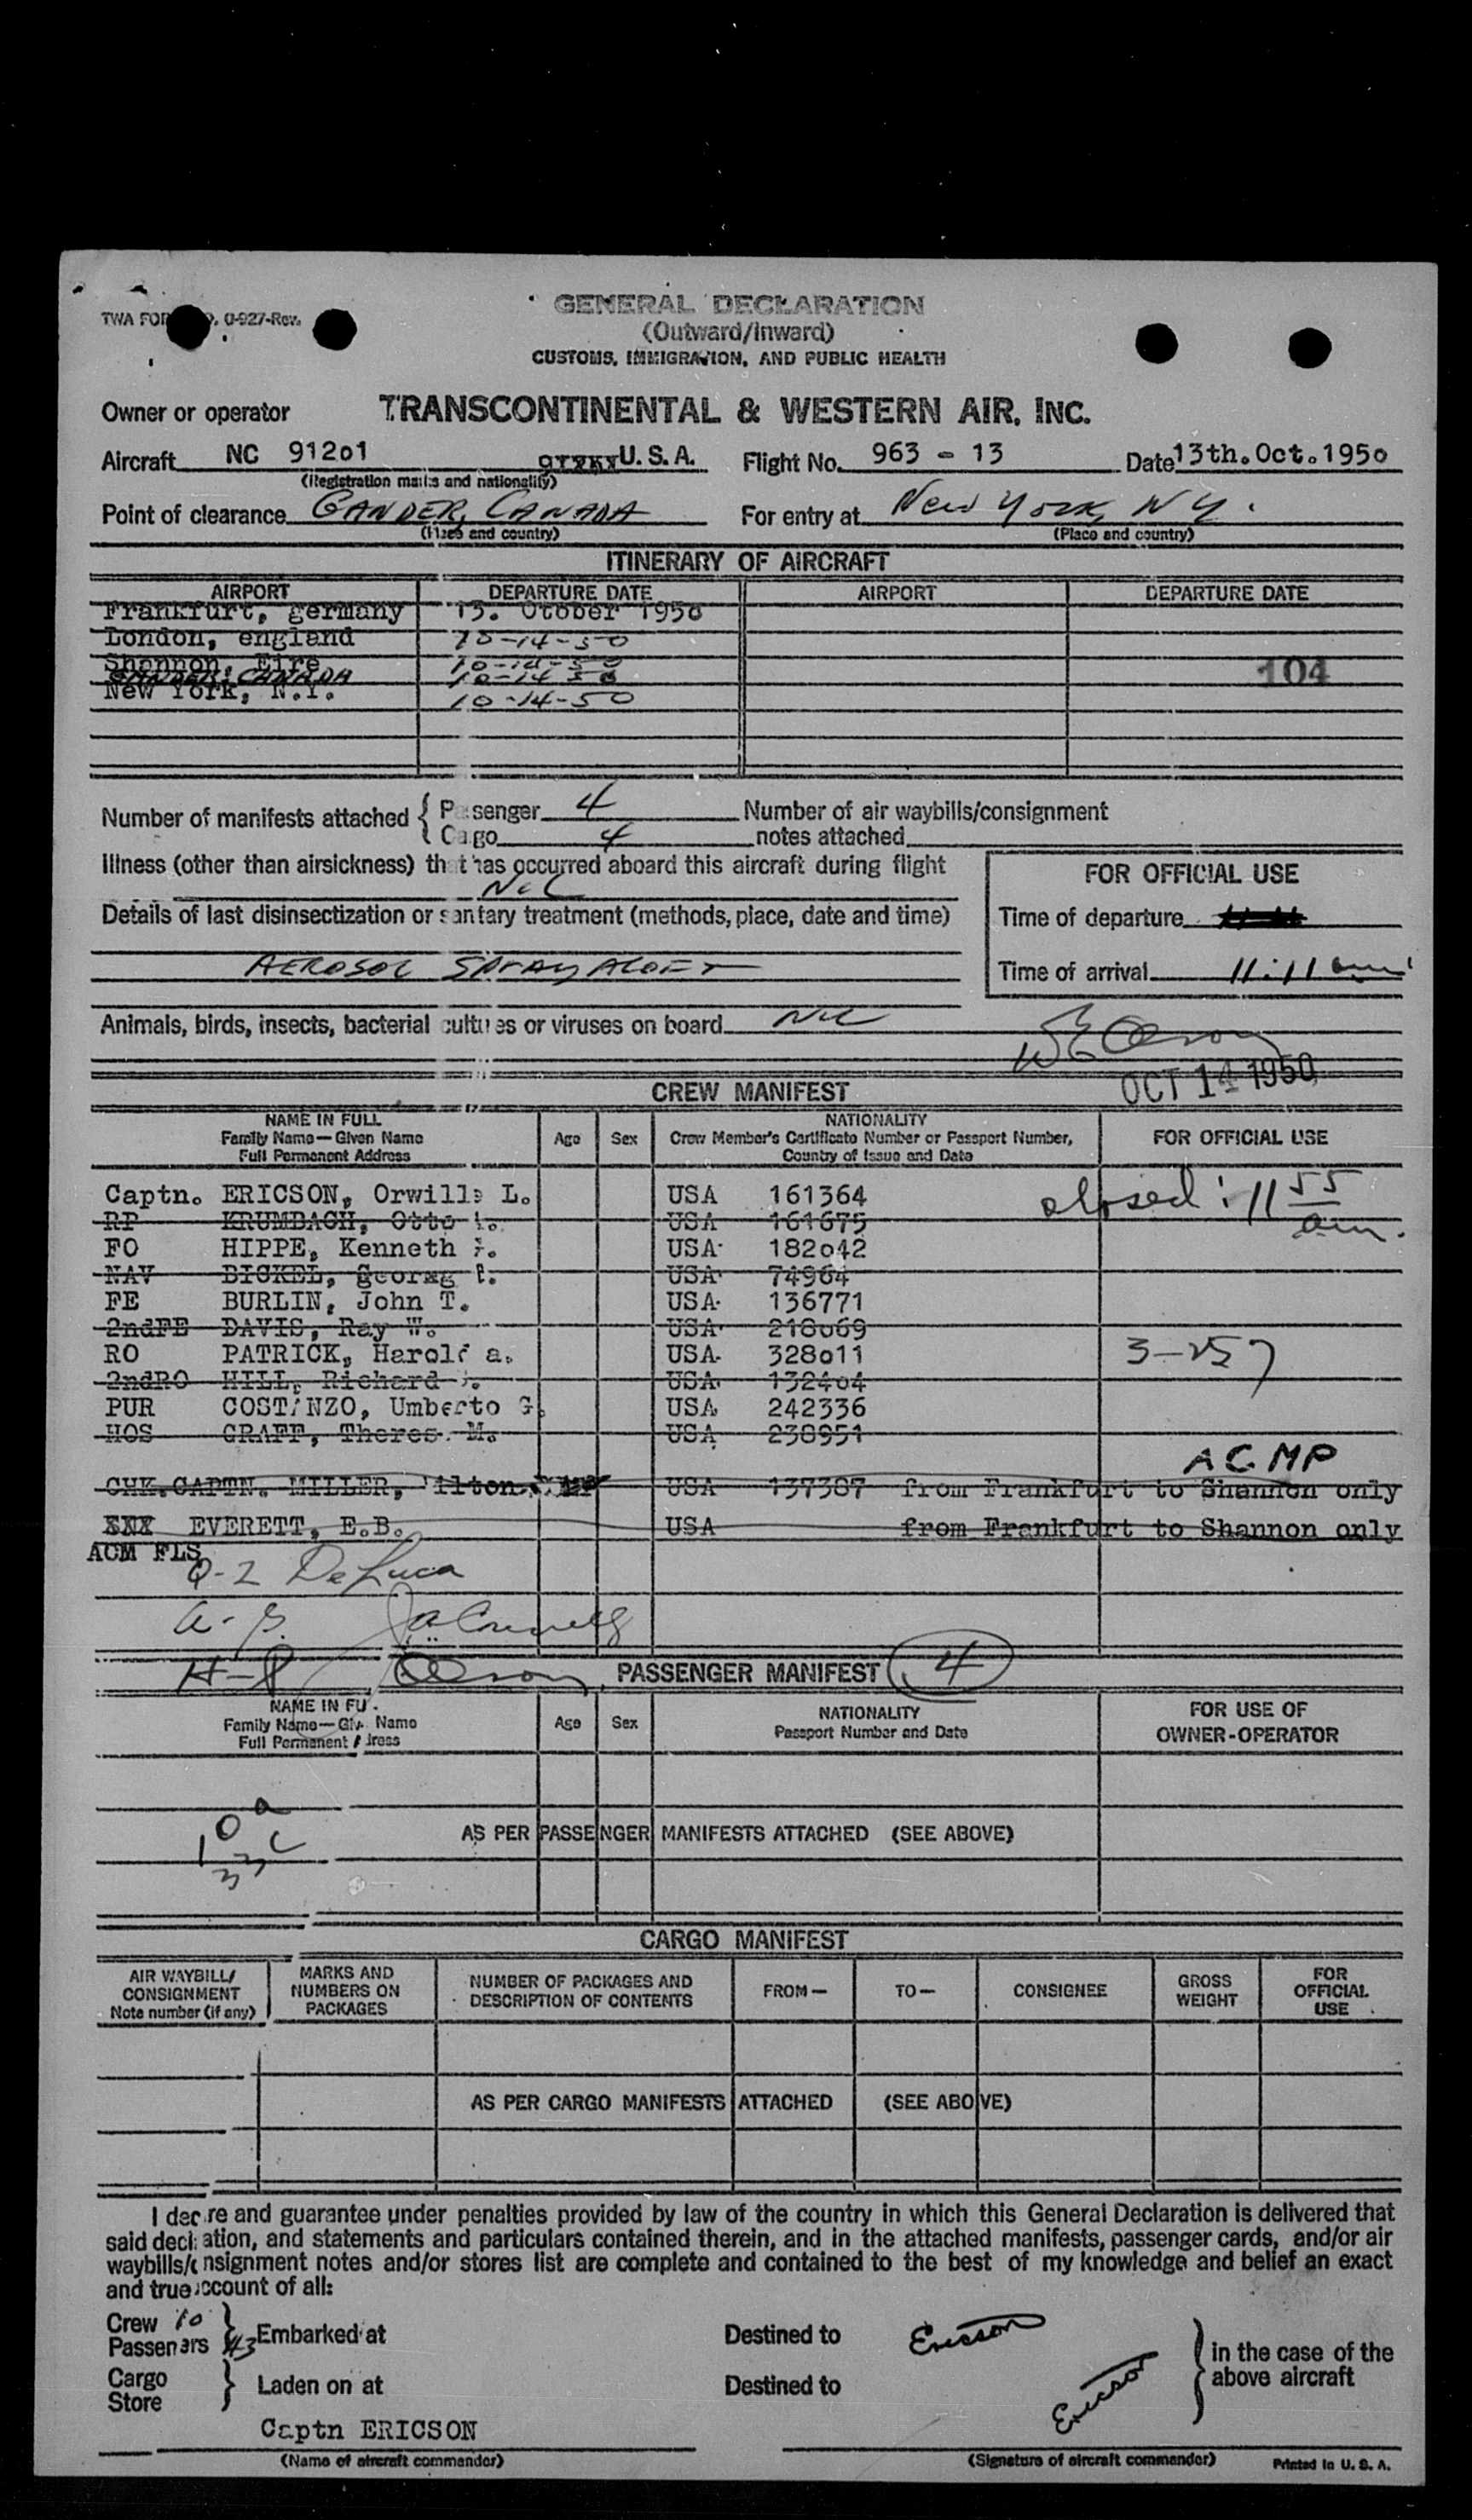 GENERAL DECLARATION
(Outward/Inward)
CUSTOMS, IMMIGRATION, AND PUBLIC HEALTH
TWA FOR 0-927-Rev.
Owner or operator TRANSCONTINENTAL & WESTERN AIR, INC.
Aircraft NC 91201 U.S.A. Flight No. 963 - 13 Date 13th.Oct.1950
(Registration marks and nationality)
Point of clearance GANDER, CANADA For entry at New York, NY.
(Place and country) (Place and country)
ITINERARY OF AIRCRAFT
AIRPORT DEPARTURE DATE AIRPORT DEPARTURE DATE
Frankfurt, germany 13. Otober 1950
London, england 10-14-50
Shannon, Eire 10-14-50
GANDER, CANADA 10-14-50
104
New York, N.Y. 10-14-50
Number of manifests attached { Passenger 4 Number of air waybills/consignment
Cargo 4 notes attached
Illness (other than airsickness) that has occurred aboard this aircraft during flight
Nil
FOR OFFICIAL USE
Details of last disinsectization or sanitary treatment (methods, place, date and time)
Time of departure
AEROSOL SPRAY ALOFT
Time of arrival 11:11 am
Animals, birds, insects, bacterial cultures or viruses on board Nil
OCT 14 1950
CREW MANIFEST
NAME IN FULL
Family Name—Given Name
Full Permanent Address
Age Sex
NATIONALITY
Crew Member's Certificate Number or Passport Number,
Country of Issue and Date
FOR OFFICIAL USE
Captn. ERICSON, Orwille L. USA 161364 closed: 11 55 am.
RP KRUMBACH, Otto USA 161675
FO HIPPE, Kenneth USA 182042
NAV BICKEL, Georgg USA 74964
FE BURLIN, John T. USA 136771
2ndFE DAVIS, Ray W. USA 218069
RO PATRICK, Harold a. USA 328011
2ndRO HILL, Richard USA 132404
PUR COSTANZO, Umberto G. USA 242336
HOS GRAFF, Theres. M. USA 238951
ACMP
CHK.CAPTN. MILLER, Wilton USA 137387 from Frankfurt to Shannon only
XXX EVERETT, E.B. USA from Frankfurt to Shannon only
ACM FLS
Q-2 DeLuca
PASSENGER MANIFEST 4
NAME IN FU
Family Name—Giv. Name
Full Permanent Address
Age Sex
NATIONALITY
Passport Number and Date
FOR USE OF
OWNER-OPERATOR
AS PER PASSENGER MANIFESTS ATTACHED (SEE ABOVE)
CARGO MANIFEST
AIR WAYBILL/
CONSIGNMENT
Note number (if any)
MARKS AND
NUMBERS ON
PACKAGES
NUMBER OF PACKAGES AND
DESCRIPTION OF CONTENTS
FROM— TO— CONSIGNEE
GROSS
WEIGHT
FOR
OFFICIAL
USE
AS PER CARGO MANIFESTS ATTACHED (SEE ABOVE)
I declare and guarantee under penalties provided by law of the country in which this General Declaration is delivered that
said declaration, and statements and particulars contained therein, and in the attached manifests, passenger cards, and/or air
waybills/consignment notes and/or stores list are complete and contained to the best of my knowledge and belief an exact
and true account of all:
Crew 10
Passengers 43 } Embarked at Destined to Ericson
in the case of the
above aircraft
Cargo
Store } Laden on at Destined to Ericson
Captn ERICSON
(Name of aircraft commander) (Signature of aircraft commander) Printed in U. S. A.